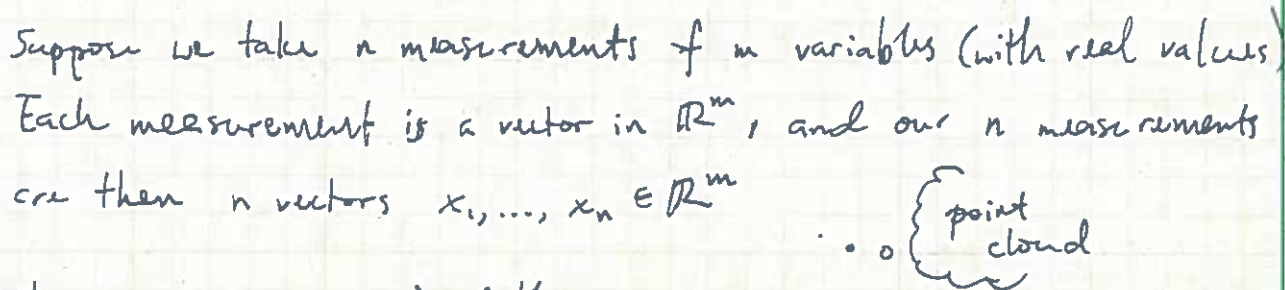 Suppose we take n measurements of m variables (with real values)
Each measurement is a vector in ℝ^m, and our n measurements
are then n vectors x₁, ..., xₙ ∈ ℝ^m
point
cloud